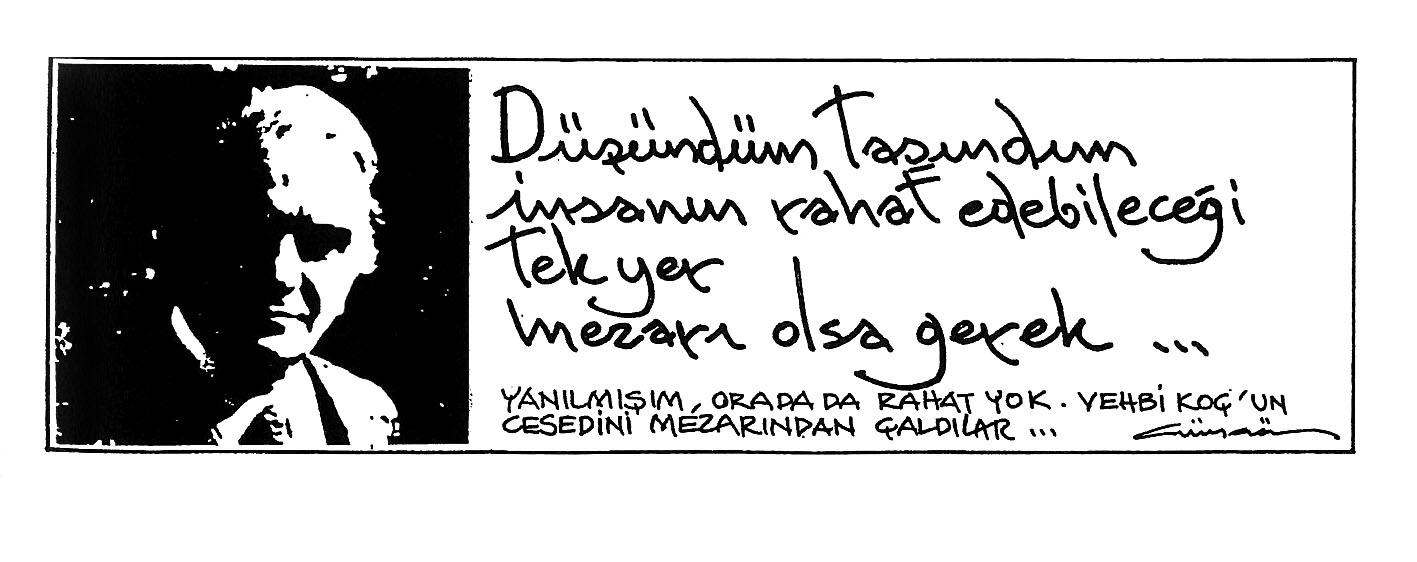 Düşündüm Taşındım
insanın rahat edebileceği
Tek yer
mezarı olsa gerek ...
YANILMIŞIM, ORADA DA RAHAT YOK. VEHBİ KOÇ'UN
CESEDİNİ MEZARINDAN ÇALDILAR ...